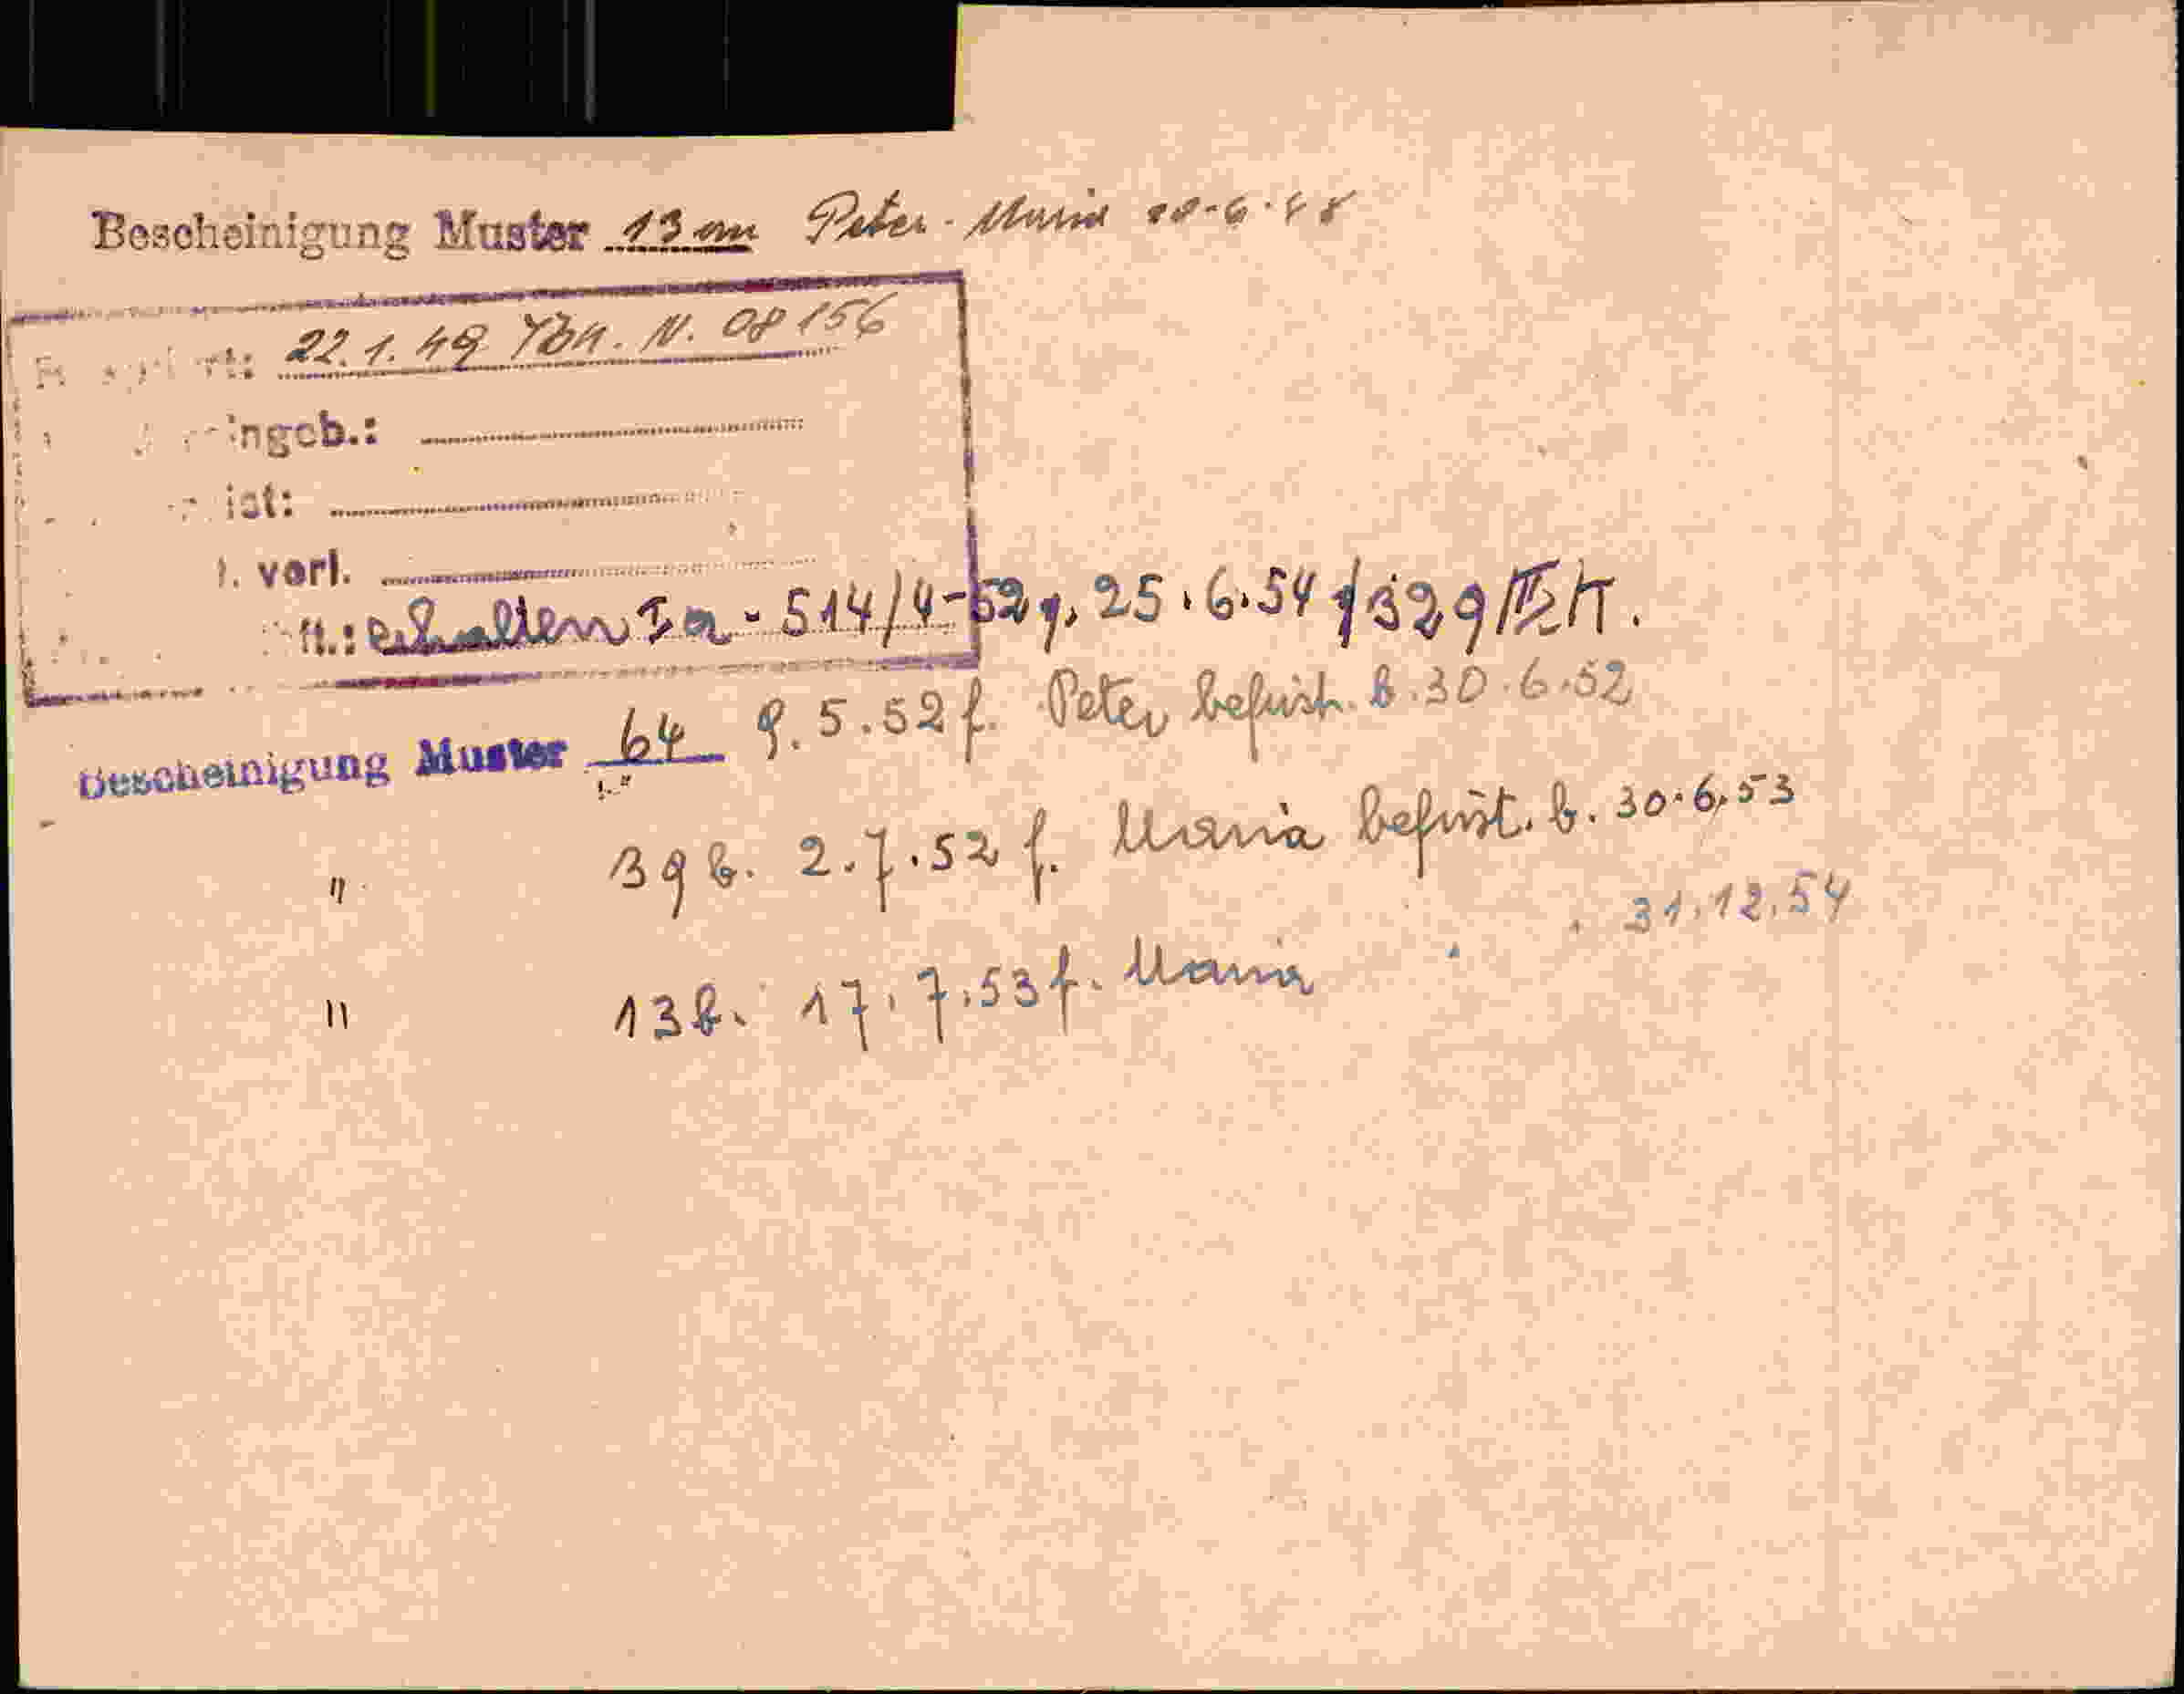 Bescheinigung Muster 13 am Peter - Maria 6.48
22.1.49 N. 08156
ingeb.:
ist:
verl.
erhalten Ia - 514/4-52 v. 25.6.54 329
Bescheinigung Muster 64 9.5.52 f. Peter befrist. b. 30.6.52
" 39 b. 2.7.52 f. Maria befrist. b. 30.6.53
" 13 b. 17.7.53 f. Maria " " 31.12.54